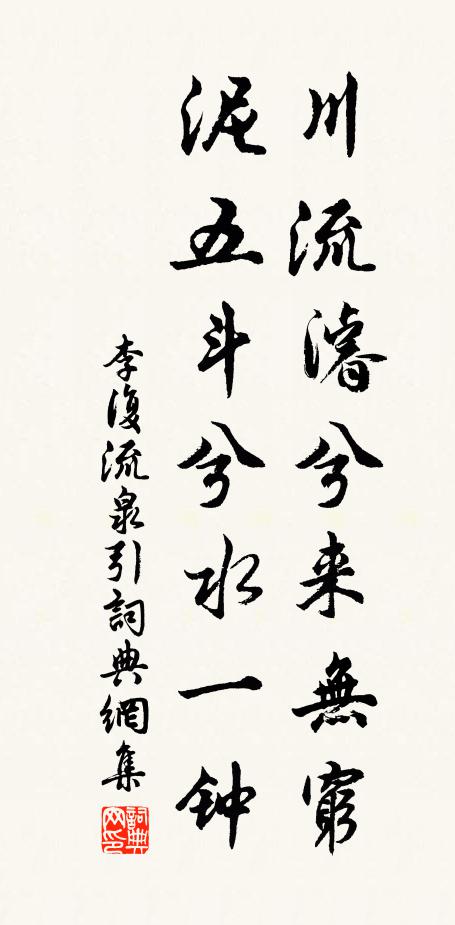 川流濬兮来無窮
泥五斗兮水一钟
李復流泉引詞典網集
詞典网印